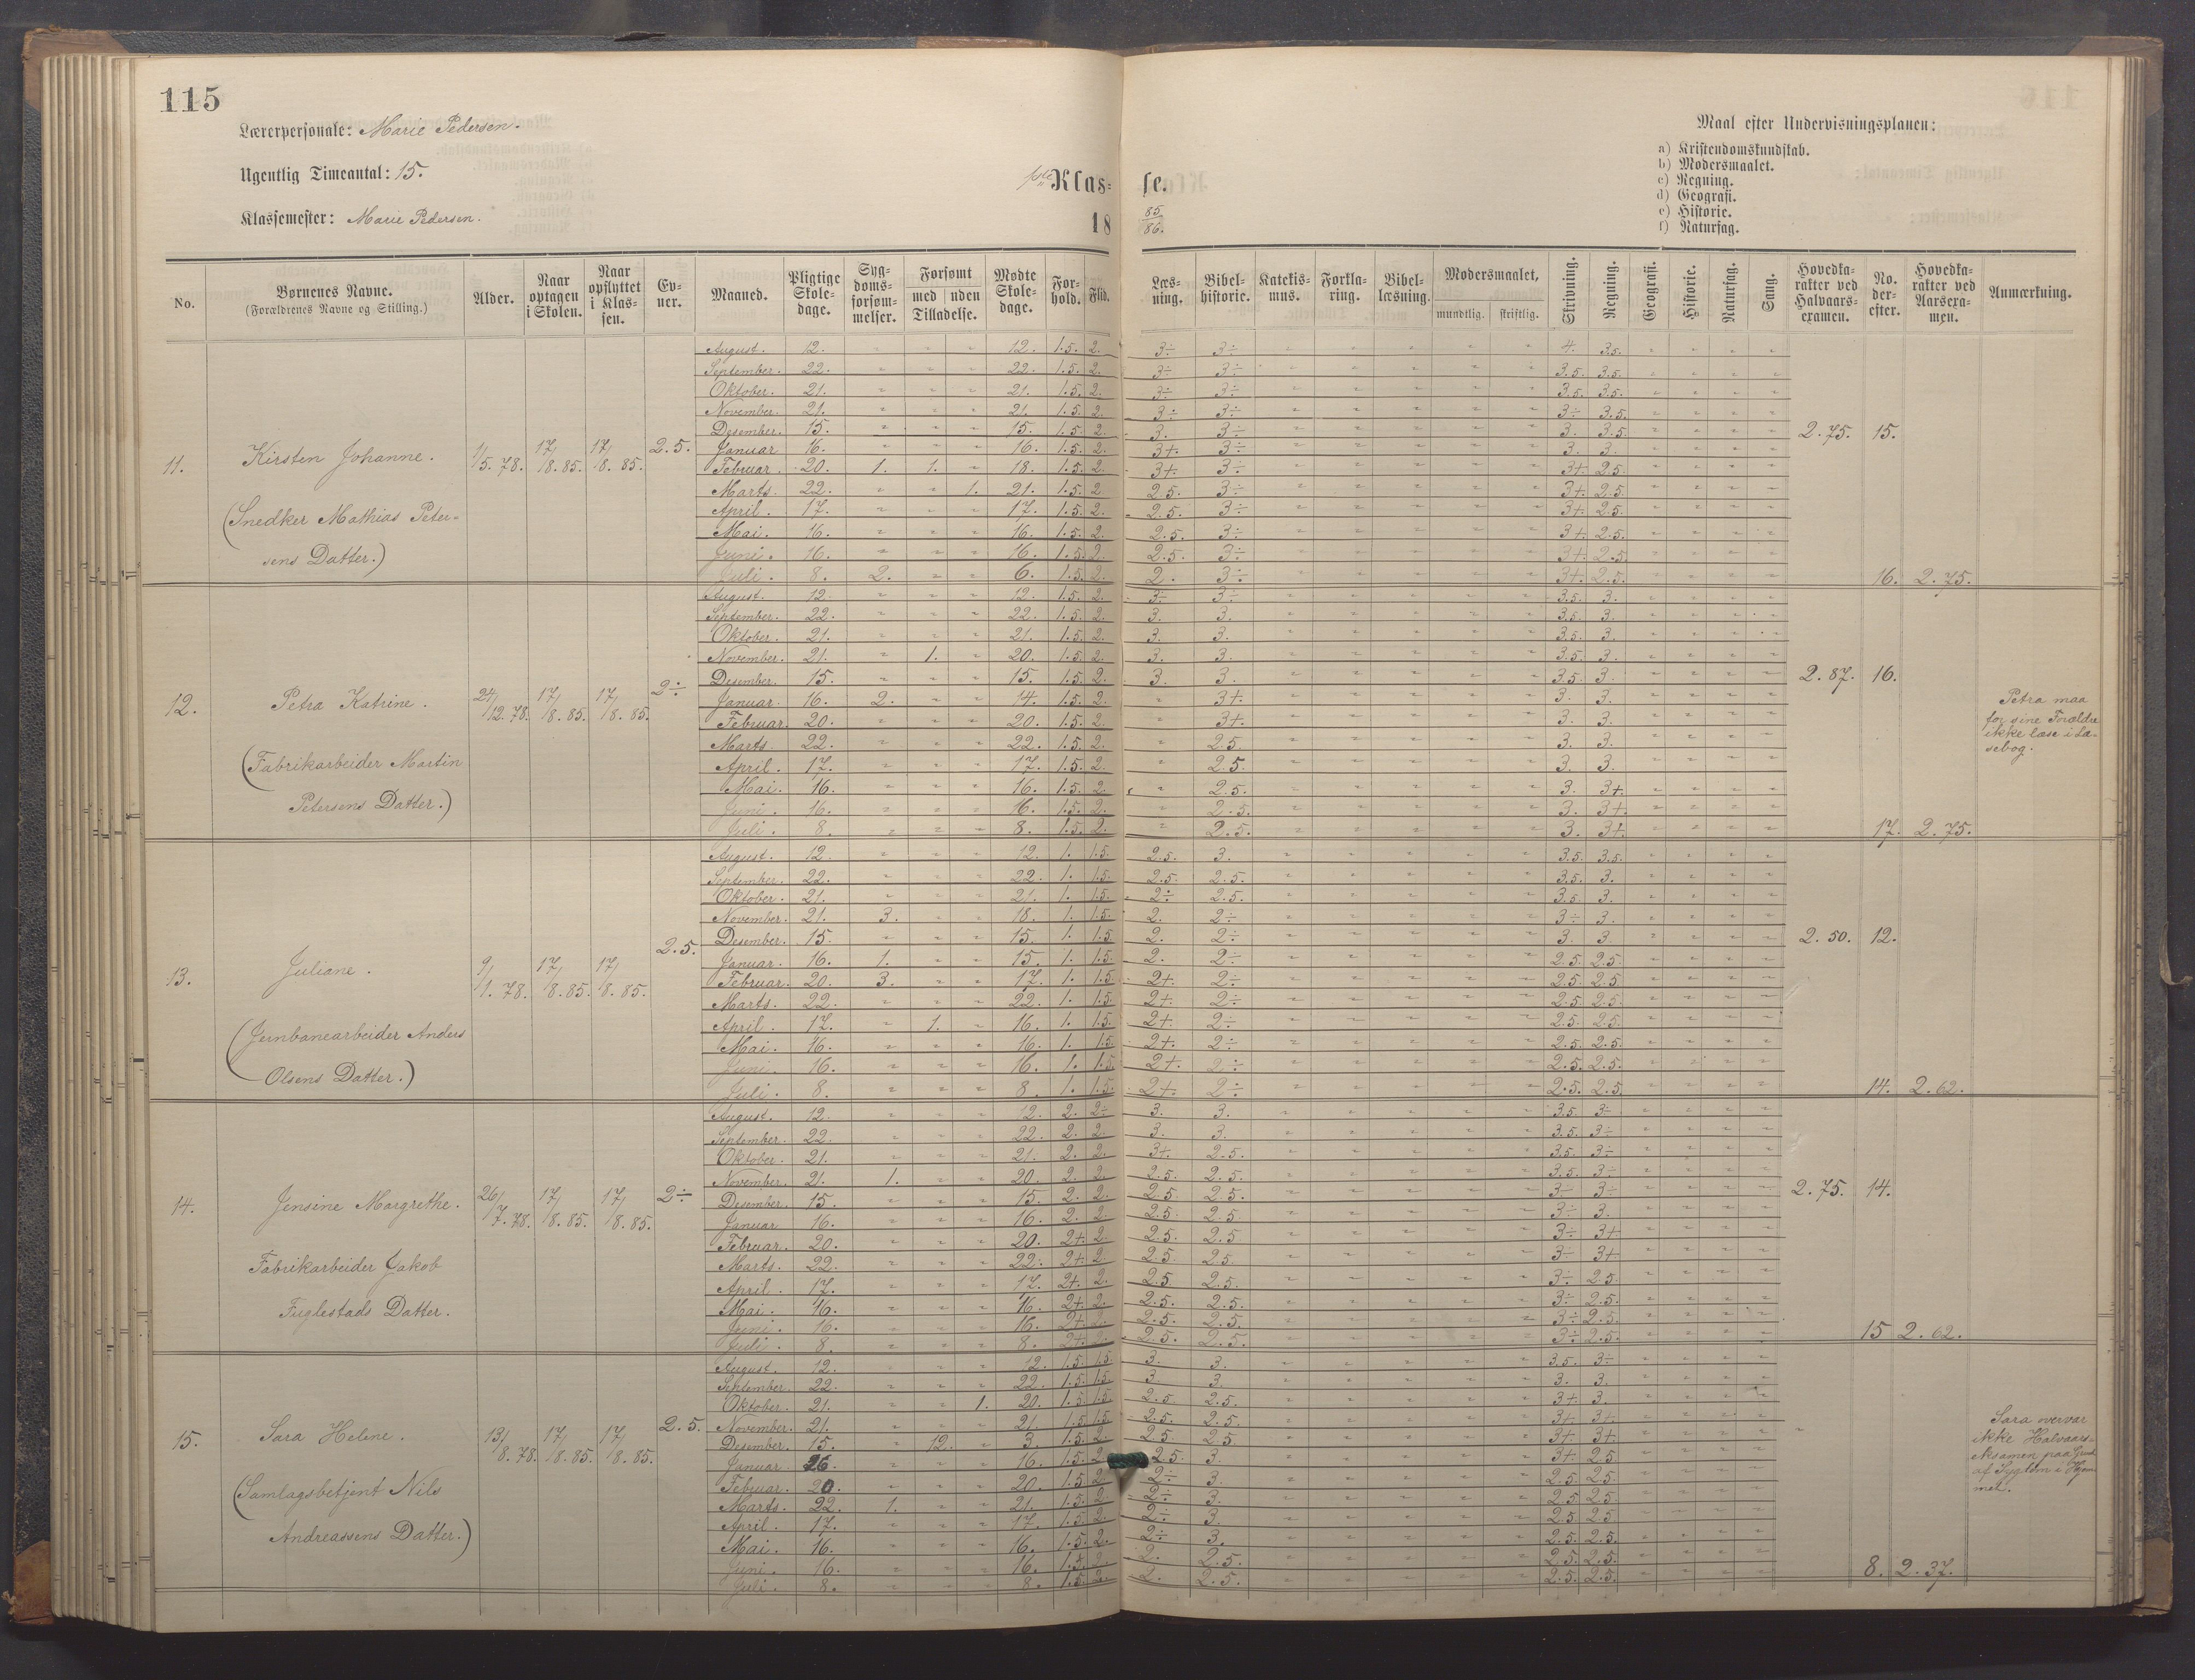 115
Lærerpersonale: Marie Pedersen.
Ugentlig Timeantal: 15.
Klassemester: Marie Pedersen.
1ste Klas-
18
se.
85
86.
Maal efter Undervisningsplanen:
a) Kristendomskundskab.
b) Modersmaalet.
c) Regning.
d) Geografi.
e) Historie.
f) Naturfag.
No. | Børnenes Navne. (Forældrenes Navne og Stilling.) | Alder. | Naar optagen i Skolen. | Naar opflyttet i Klassen. | Evner. | Maaned. | Pligtige Skoledage. | Sygdomsforsømmelser. | Forsømt med Tilladelse. | uden Tilladelse. | Mødte Skoledage. | Forhold. | Flid. | Læsning. | Bibelhistorie. | Katekismus. | Forklaring. | Bibellæsning. | Modersmaalet, mundtlig. | skriftlig. | Skrivning. | Regning. | Geografi. | Historie. | Naturfag. | Sang. | Hovedkarakter ved Halvaarsexamen. | No. derefter. | Hovedkarakter ved Aarsexamen. | Anmærkning.
11. Kirsten Johanne. 1/5. 78. 17/8. 85. 17/8. 85. 2.5.
(Snedker Mathias Peter-
sens Datter.)
August. 12. " " " 12. 1.5. 2. 3÷ 3÷ 4. 3.5.
September. 22. " " " 22. 1.5. 2. 3÷ 3÷ 3.5. 3.5.
Oktober. 21. " " " 21. 1.5. 2. 3÷ 3÷ 3.5. 3.5.
November. 21. " " " 21. 1.5. 2. 3÷ 3÷ 3÷ 3.5.
Desember. 15. " " " 15. 1.5. 2. 3. 3÷ 3. 3.5. 2.75. 15.
Januar 16. " " " 16. 1.5. 2. 3+. 3÷ 3. 3.
Februar. 20. 1. 1. " 18. 1.5. 2. 3+. 3÷ 3+. 2.5.
Marts. 22. " " 1. 21. 1.5. 2. 2.5. 3÷ 3+. 2.5.
April. 17. " " " 17. 1.5. 2. 2.5. 3÷ 3+. 2.5.
Mai. 16. " " " 16. 1.5. 2. 2.5. 3÷ 3+. 2.5.
Juni. 16. " " " 16. 1.5. 2. 2.5. 3÷ 3+. 2.5.
Juli. 8. 2. " " 6. 1.5. 2. 2. 3÷ 3+. 2.5. 16. 2.75.
12. Petra Katrine. 24/12. 78. 17/8. 85. 17/8. 85. 2÷
(Fabrikarbeider Martin
Petersens Datter.)
August. 12. " " " 12. 1.5. 2. 3÷ 3÷ 3.5. 3.
September. 22. " " " 22. 1.5. 2. 3. 3. 3.5. 3.
Oktober. 21. " " " 21. 1.5. 2. 3. 3. 3.5. 3.
November. 21. " 1. " 20. 1.5. 2. 3. 3. 3.5. 3.
Desember. 15. " " " 15. 1.5. 2. 3. 3. 3.5. 3. 2.87. 16.
Januar. 16. 2. " " 14. 1.5. 2. " 3+. 3. 3.
Februar. 20. " " " 20. 1.5. 2. " 3+. 3. 3.
Marts. 22. " " " 22. 1.5. 2. " 2.5. 3. 3.
April. 17. " " " 17. 1.5. 2. " 2.5. 3. 3.
Mai. 16. " " " 16. 1.5. 2. " 2.5. 3. 3+.
Juni. 16. " " " 16. 1.5. 2. " 2.5. 3. 3+.
Juli. 8. " " " 8. 1.5. 2. " 2.5. 3. 3+. 17. 2.75.
Petra maa
for sine Forældre
ikke læse i Læ-
sebog.
13. Juliane. 9/1. 78. 17/8. 85. 17/8. 85. 2.5.
(Jernbanearbeider Anders
Olsens Datter.)
August. 12. " " " 12. 1. 1.5. 2.5. 3. 3.5. 3.5.
September. 22. " " " 22. 1. 1.5. 2.5. 2.5. 3.5. 3.
Oktober. 21. " " " 21. 1. 1.5. 2÷ 2.5. 3.5. 3.
November. 21. 3. " " 18. 1. 1.5. 2. 2÷ 3÷ 3.
Desember. 15. " " " 15. 1. 1.5. 2. 2÷ 3. 3. 2.50. 12.
Januar. 16. 1. " " 15. 1. 1.5. 2. 2÷ 2.5. 2.5.
Februar. 20. 3. " " 17. 1. 1.5. 2+ 2÷ 2.5. 2.5.
Marts. 22. " " " 22. 1. 1.5. 2+. 2÷ 2.5. 2.5.
April. 17. " 1. " 16. 1. 1.5. 2+. 2÷ 2.5. 2.5.
Mai. 16. " " " 16. 1. 1.5. 2+. 2÷ 2.5. 2.5.
Juni. 16. " " " 16. 1. 1.5. 2+. 2÷ 2.5. 2.5.
Juli. 8. " " " 8. 1. 1.5. 2+. 2÷ 2.5. 2.5. 14. 2.62.
14. Jensine Margrethe. 26/7. 78. 17/8. 85. 17/8. 85. 2÷
Fabrikarbeider Jakob
Fuglestads Datter.
August. 12. " " " 12. 2. 2÷ 3. 3. 3.5. 3÷
September. 22. " " " 22. 2. 2. 3. 3. 3.5. 3÷
Oktober. 21. " " " 21. 2. 2. 3+. 2.5. 3.5. 3÷
November. 21. 1. " " 20. 2. 2. 2.5. 2.5. 3.5. 3÷
Desember. 15. " " " 15. 2. 2. 2.5. 2.5. 3÷ 3÷ 2.75. 14.
Januar 16. " " " 16. 2. 2. 2.5. 2.5. 3÷ 3.
Februar. 20. " " " 20. 2+. 2. 2.5. 2.5 3÷ 3+.
Marts. 22. " " " 22. 2+. 2. 2.5 2.5. 3÷ 3+
April. 17. " " " 17. 2+. 2. 2.5. 2.5. 3÷ 2.5.
Mai. 16. " " " 16. 2+. 2. 2.5. 2.5. 3÷ 2.5.
Juni. 16. " " " 16. 2+. 2. 2.5. 2.5. 3÷ 2.5.
Juli. 8. " " " 8. 2+. 2. 2.5. 2.5. 3÷ 2.5. 15 2.62.
15. Sara Helene. 13/8. 78. 17/8. 85. 17/8. 85. 2.5.
(Samlagsbetjent Nils
Andreassens Datter.)
August. 12. " " " 12. 1.5. 1.5. 3. 3. 3.5. 3÷
September. 22. " " " 22. 1.5. 1.5. 3 3. 3. 3.
Oktober. 21. " " 1. 20. 1.5. 1.5. 2.5 2.5. 3+. 3.
November. 21. " " " 21. 1.5. 1.5. 2.5. 2.5. 3+. 3+.
Desember. 15. " 12. " 3. 1.5. 2. 2.5 2.5. 3+ 3+.
Januar 16. " " " 16. 1.5. 2. 2.5. 3. 3+ 2.5.
Februar. 20. " " " 20. 1.5. 2. 2÷ 3. 2.5 2.5.
Marts. 22. 1. " " 21. 1.5. 2. 2÷ 3. 2.5 2.5.
April. 17. " " " 17. 1.5. 2. 2÷ 3. 2.5 2.5.
Mai. 16. " " " 16. 1.5. 2. 2÷ 3. 2.5. 2.5.
Juni. 16. " " " 16. 1.5. 2. 2. 2.5. 2.5. 2.5.
Juli. 8. " " " 8. 1.5. 2. 2. 2.5. 2.5. 2.5. 8. 2.37.
Sara overvar
ikke Halvaars-
eksamen paa Grund
af Sygdom i Hjem-
met.